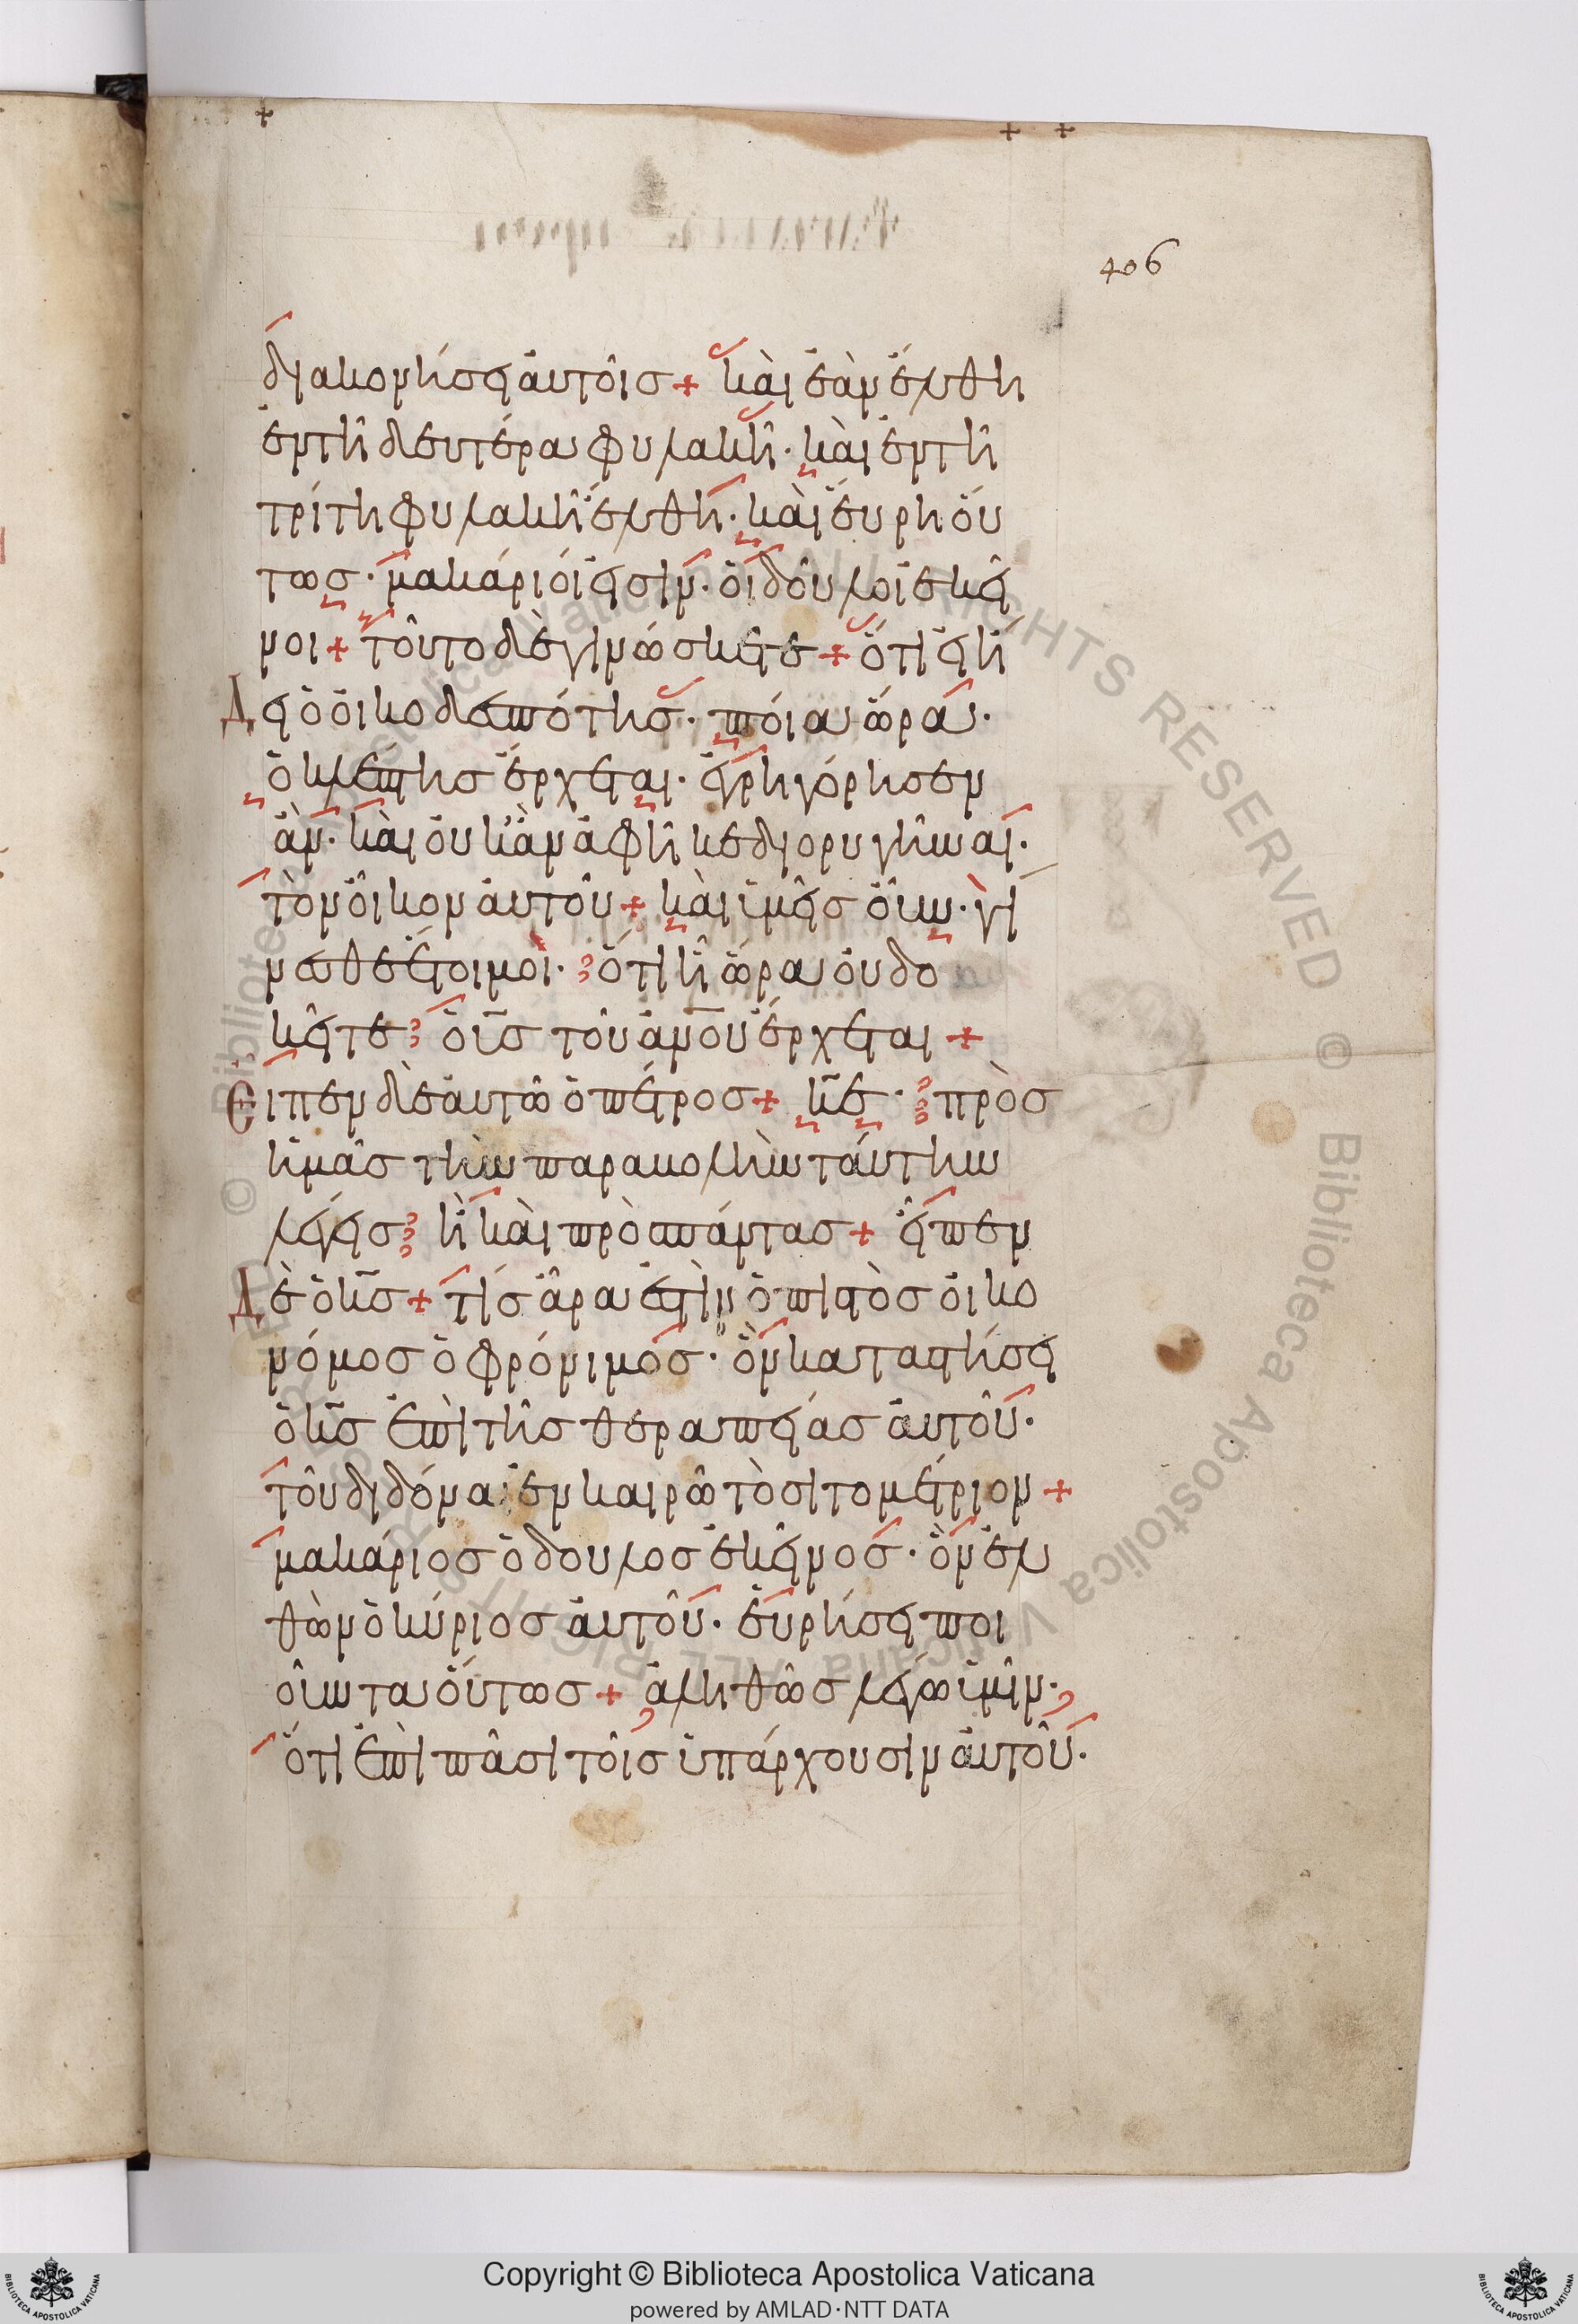 406
διακονήσει αὐτοῖς + καὶ ἐὰν ἔλθη
ἐν τῆ δευτέρα φυλακῆ · καὶ ἐν τῆ
τρίτη φυλακῆ ἔλθη · καὶ εὕρη οὕ
τως · μακάριοί εἰσιν · οἱ δοῦλοι ἐκεῖ
νοι + τοῦτο δὲ γινώσκετε + ὅτι εἰ ἤ
Δει ὁ οἰκοδεσπότης · ποία ὥρα ·
ὁ κλέπτης ἔρχεται · ἐγρηγόρησεν
ἄν · καὶ οὐκ ἂν ἀφῆκε διορυγῆναι ·
τὸν οἶκον αὐτοῦ + καὶ ἱμεῖς οὖν · γί
νεσθε ἕτοιμοι · ὅτι ἧ ὥρα οὐ δο
κεῖτε ὁ υἱς τοῦ ἀνου ἔρχεται +
Εἶπεν δὲ αὐτῶ ὁ πέτρος + κε · πρὸς
ἡμᾶς τὴν παραβολὴν ταύτην
λέγεις ἢ καὶ πρὸς πάντας + εἶπεν
Δὲ ὁ κς + τίς ἄρα ἐστὶν ὁ πιστὸς οἰκο
νόμος ὁ φρόνιμος · ὃν καταστήσει
ὁ κς ἐπὶ τῆς θεραπείας αὐτοῦ ·
τοῦ διδόναι ἐν καιρῶ τὸ σιτομέτριον +
μακάριος ὁ δουλος ἐκεῖνος · ὃν ἐλ
θὼν ὁ κύριος αὐτοῦ · εὑρήσει ποι
οῦντα οὕτως + ἀληθῶς λέγω ἱμῖν ·
ὅτι ἐπὶ πᾶσι τοῖς ὑπάρχουσιν αὐτοῦ ·
© Biblioteca Apostolica Vaticana ALL RIGHTS RESERVED
Copyright © Biblioteca Apostolica Vaticana
powered by AMLAD·NTT DATA
BIBLIOTECA APOSTOLICA VATICANA
BIBLIOTECA APOSTOLICA VATICANA